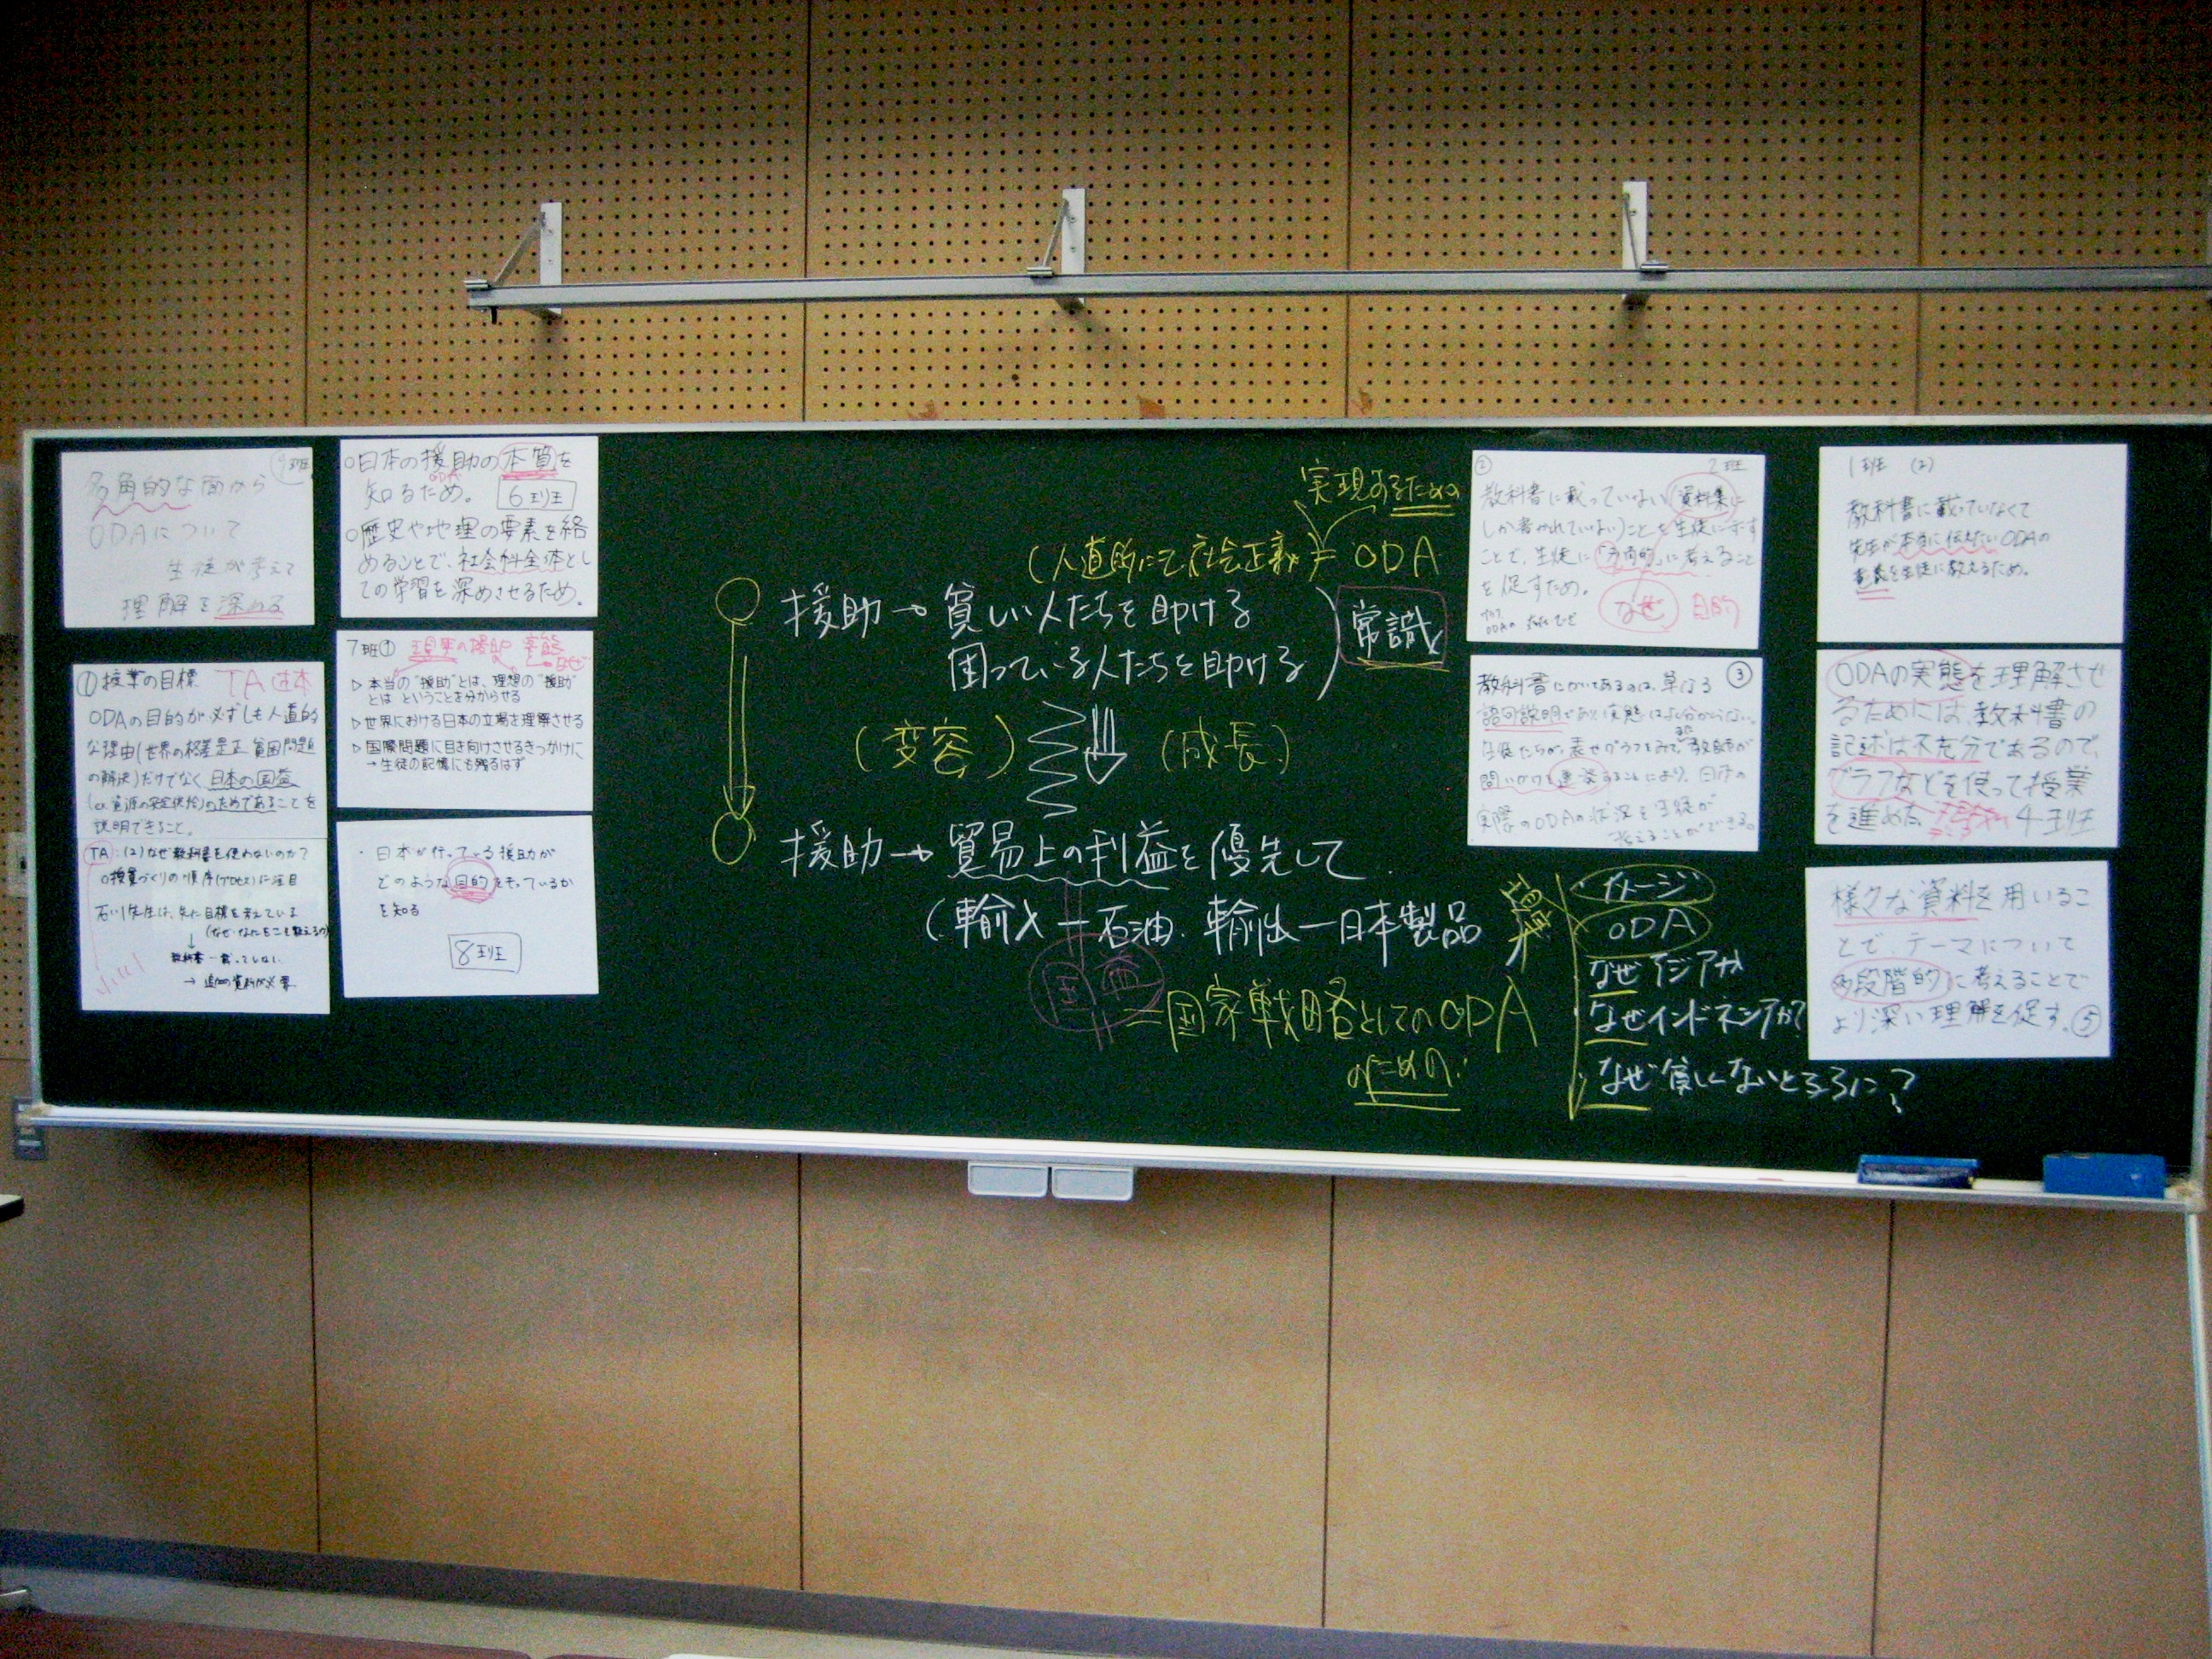 9班
多角的な面から
ODAについて
生徒が考えて
理解を深める
①授業の目標 TA
ODAの目的が必ずしも人道的
な理由(世界の格差是正、貧困問題
の解決)だけでなく、日本の国益
のためであることを
説明できること。
TA:(2)なぜ教科書を使わないのか?
○授業づくりの順序(プロセス)に注目
石川先生は、先に目標を考えている
○日本の援助の本質を
ODA
知るため。 6班
○歴史や地理の要素を絡
めることで、社会科全体とし
ての学習を深めさせるため。
7班① 現実の援助 実態
なぜ
▷本当の"援助"とは、理想の"援助"
とは ということを分からせる
▷世界における日本の立場を理解させる
▷国際問題に目を向けさせるきっかけに
→生徒の記憶にも残るはず
・日本が行っている援助が
どのような目的をもっているか
を知る
8班
実現するための
ODA
援助→貧しい人たちを助ける
困っている人たちを助ける
常識
(変容) (成長)
援助→貿易上の利益を優先して
(輸入―石油、輸出―日本製品
国益
=国家戦略としてのODA
のための
② 2班
教科書に載っていない(資料集に
しか書かれていない)ことを生徒に示す
ことで、生徒に「多角的」に考えること
を促すため。
なぜ 目的
③
教科書にかいてあるのは、単なる
語句説明であり、実態はよく分からない。
実際のODAの状況を生徒が
考えることができる。
イメージ
ODA
現実
なぜアジアか
なぜインドネシアか?
なぜ貧しくないところに?
1班 (2)
教科書に載っていなくて
先生が本当に伝えたいODAの
意義を生徒に教えるため。
ODAの実態を理解させ
るためには、教科書の
記述は不充分であるので、
グラフなどを使って授業
を進めた。 4班
様々な資料を用いるこ
とで、テーマについて
多段階的に考えることで
より深い理解を促す。⑤